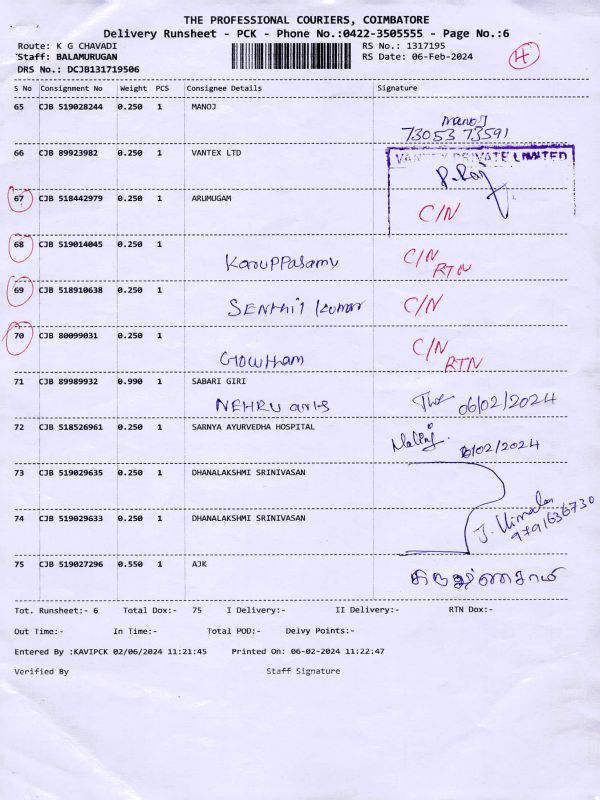 THE PROFESSIONAL COURIERS, COIMBATORE
Delivery Runsheet - PCK - Phone No.:0422-3505555 - Page No.:6
Route: K G CHAVADI RS No.: 1317195
Staff: BALAMURUGAN RS Date: 06-Feb-2024
DRS No.: DCJB131719506
4
S No Consignment No Weight PCS Consignee Details Signature
65 CJB 519028244 0.250 1 MANOJ
Manoj
73053 73591
66 CJB 89923982 0.250 1 VANTEX LTD
VANTEX PRIVATE LIMITED
P. Raj
67 CJB 518442979 0.250 1 ARUMUGAM
C/N
68 CJB 519014045 0.250 1
Karuppasamy C/N
RTN
69 CJB 518910638 0.250 1
Senthil kumar C/N
70 CJB 80099031 0.250 1
Gowtham C/N
RTN
71 CJB 89989932 0.990 1 SABARI GIRI
NEHRU arts 06/02/2024
72 CJB 518526961 0.250 1 SARNYA AYURVEDHA HOSPITAL
6/02/2024
73 CJB 519029635 0.250 1 DHANALAKSHMI SRINIVASAN
74 CJB 519029633 0.250 1 DHANALAKSHMI SRINIVASAN
J. Vimala
9791636730
75 CJB 519027296 0.550 1 AJK
Tot. Runsheet:- 6 Total Dox:- 75 I Delivery:- II Delivery:- RTN Dox:-
Out Time:- In Time:- Total POD:- Delvy Points:-
Entered By :KAVIPCK 02/06/2024 11:21:45 Printed On: 06-02-2024 11:22:47
Verified By Staff Signature